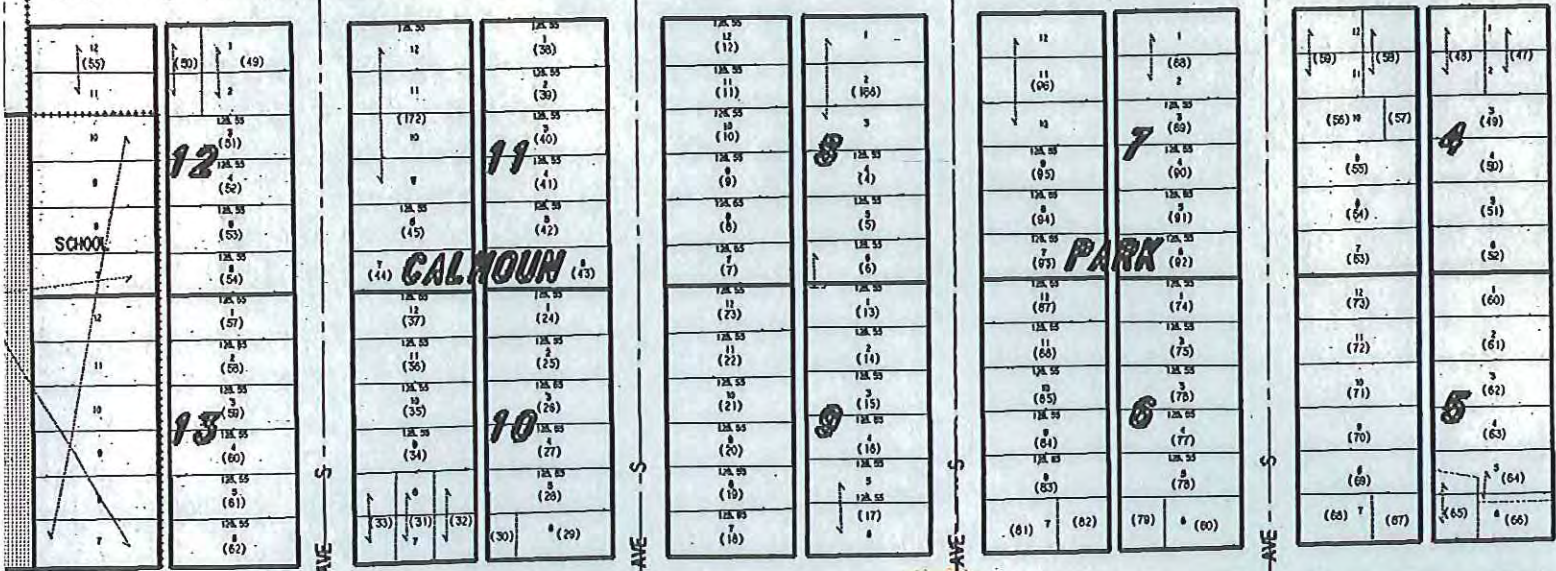 12
(55)
11
10
9
8
SCHOOL
7
12
11
10
9
8
7
1
(50) (49)
2
128.55
3
(51)
12
128.55
4
(52)
128.55
(53)
128.55
(54)
128.55
1
(57)
128.55
2
(58)
128.55
3
(59)
13
128.55
4
(60)
128.55
5
(61)
128.55
(62)
S
AVE
128.55
12
11
(172)
10
128.55
(45)
7
(44)
CALHOUN
128.55
12
(37)
128.55
11
(36)
128.55
10
(35)
128.55
(34)
(33) (31) (32)
7
128.55
1
(38)
128.55
2
(39)
128.55
3
(40)
11
128.55
4
(41)
128.55
(42)
(43)
128.55
1
(24)
128.55
2
(25)
128.55
3
(26)
10
4
(27)
5
(28)
(30) (29)
S
AVE
128.55
12
(12)
128.55
11
(11)
128.55
10
(10)
128.55
(9)
(8)
7
(7)
128.55
12
(23)
128.55
11
(22)
128.55
10
(21)
128.55
(20)
128.55
(19)
128.55
7
(18)
1
2
(168)
3
8
128.55
4
(4)
128.55
5
(5)
128.55
(6)
128.55
1
(13)
128.55
2
(14)
128.55
3
(15)
9
128.55
4
(16)
5
128.55
(17)
S
AVE
12
11
(96)
10
128.55
(95)
128.55
(94)
128.55
7
(93)
PARK
128.55
12
(87)
128.55
11
128.55
10
(85)
128.55
(84)
(83)
(81) 7 (82)
1
(88)
2
128.55
3
(89)
7
128.55
4
(90)
5
(91)
128.55
(92)
128.55
1
(74)
128.55
3
(76)
6
128.55
4
(77)
128.55
(78)
(79) (80)
S
AVE
12
(59) (58)
11
(56) 10 (57)
(55)
(54)
7
(53)
12
(73)
11
(72)
10
(71)
(70)
(69)
(68) 7 (67)
1
(48) (47)
2
3
(49)
4
4
(50)
(51)
(52)
1
(60)
2
(61)
3
(62)
5
4
(63)
5
(64)
(65) (66)